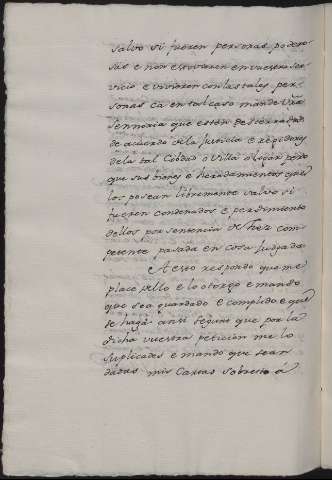 salvo si fueren personas podero-
sas e non estovieren en vuestro ser-
vicio e vivieren con las tales per-
sonas ca en tal caso mande Vra
Sennoria que esten desterrados
de acuerdo de la Justicia e regidores
de la tal Cibdad o Villa o logar pero
que sus bienes e heredamientos que
los posean libremente salvo si
fueren condenados e perdimiento
dellos por sentencia de Juez com-
petente pasada en cosa Juzgada
A esto respondo que me
place dello e lo otorgo e mando
que sea guardado e complido e que
se haga ansi segund que por la
dicha vuestra peticion me lo
suplicades e mando que sean
dadas mis Cartas sobresto á